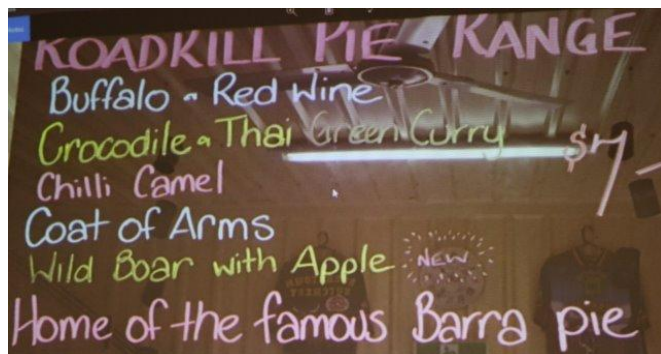 ROADKILL PIE RANGE
Buffalo & Red Wine
Crocodile & Thai Green Curry
$7-
Chilli Camel
Coat of Arms
Wild Boar with Apple NEW
Home of the famous Barra pie